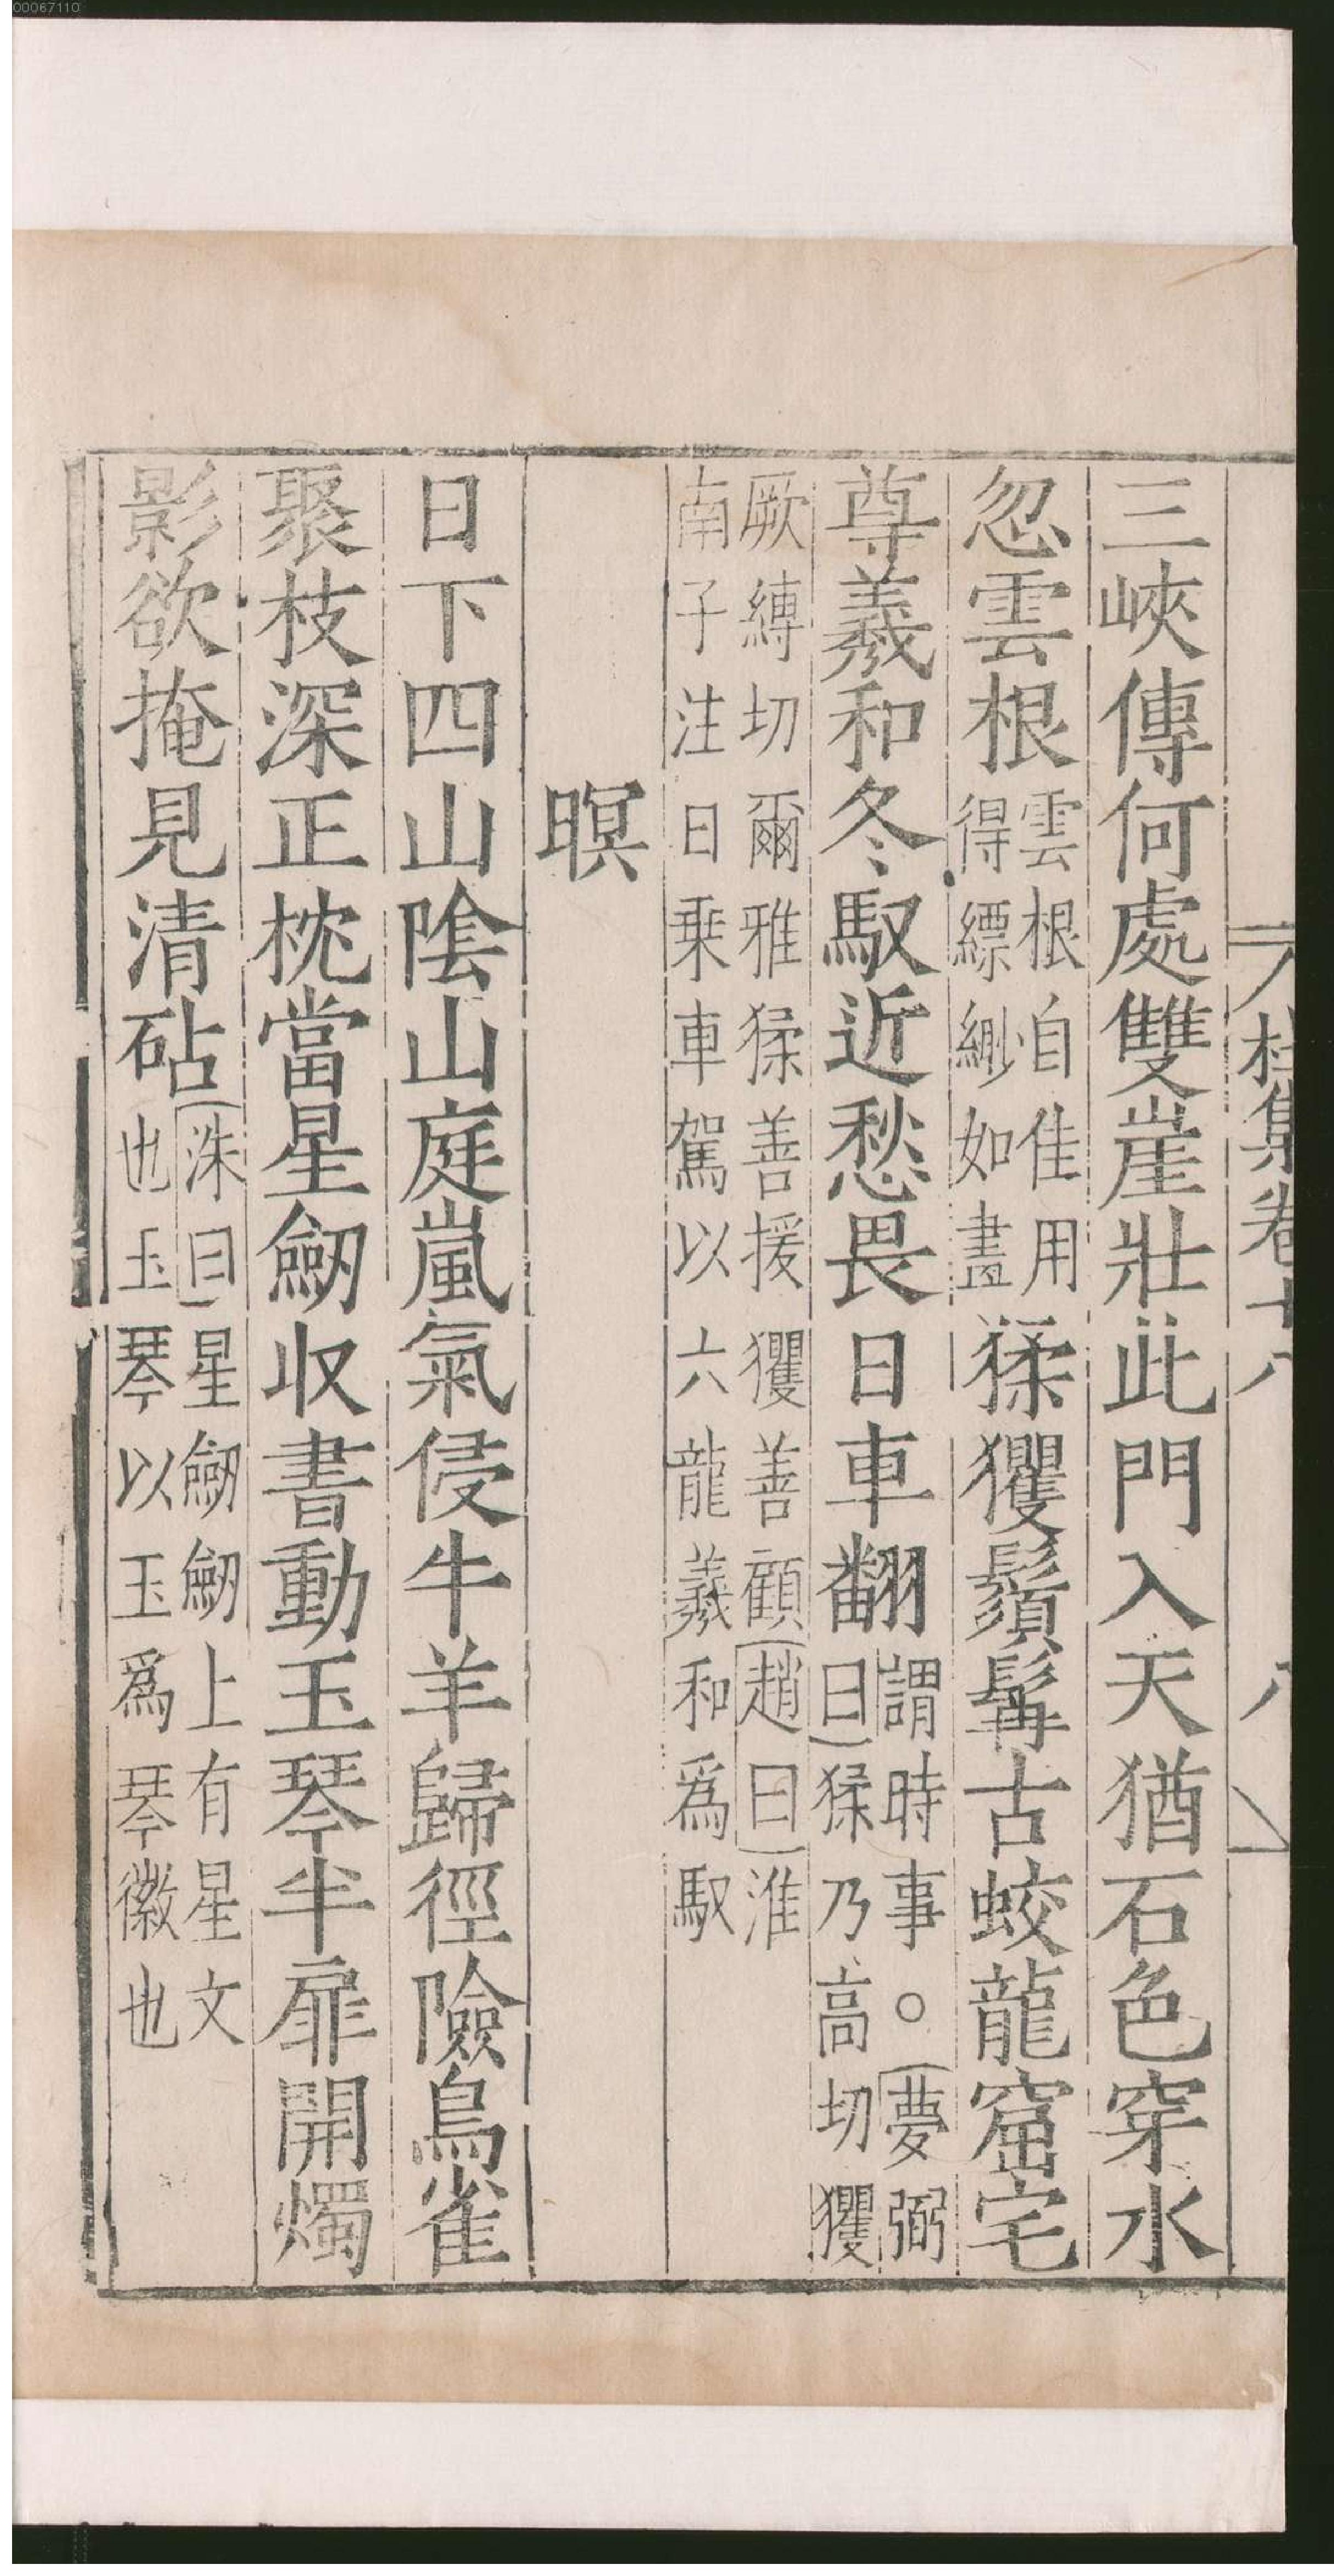 00067110
杜集卷十八 八
三峽傳何處雙崖壯此門入天猶石色穿水
忽雲根雲根自佳用得縹緲如畫猱玃鬚髯古蛟龍窟宅
尊羲和冬馭近愁畏日車翻謂時事。夢弼曰猱乃高切玃
厥縛切爾雅猱善援玃善顧趙曰淮南子注日乗車駕以六龍羲和爲馭
暝
日下四山隂山庭嵐氣侵牛羊歸徑險鳥雀
聚枝深正枕當星劒収書動玉琴半扉開燭
影欲掩見清砧洙曰星劒劒上有星文也玉琴以玉爲琴徽也